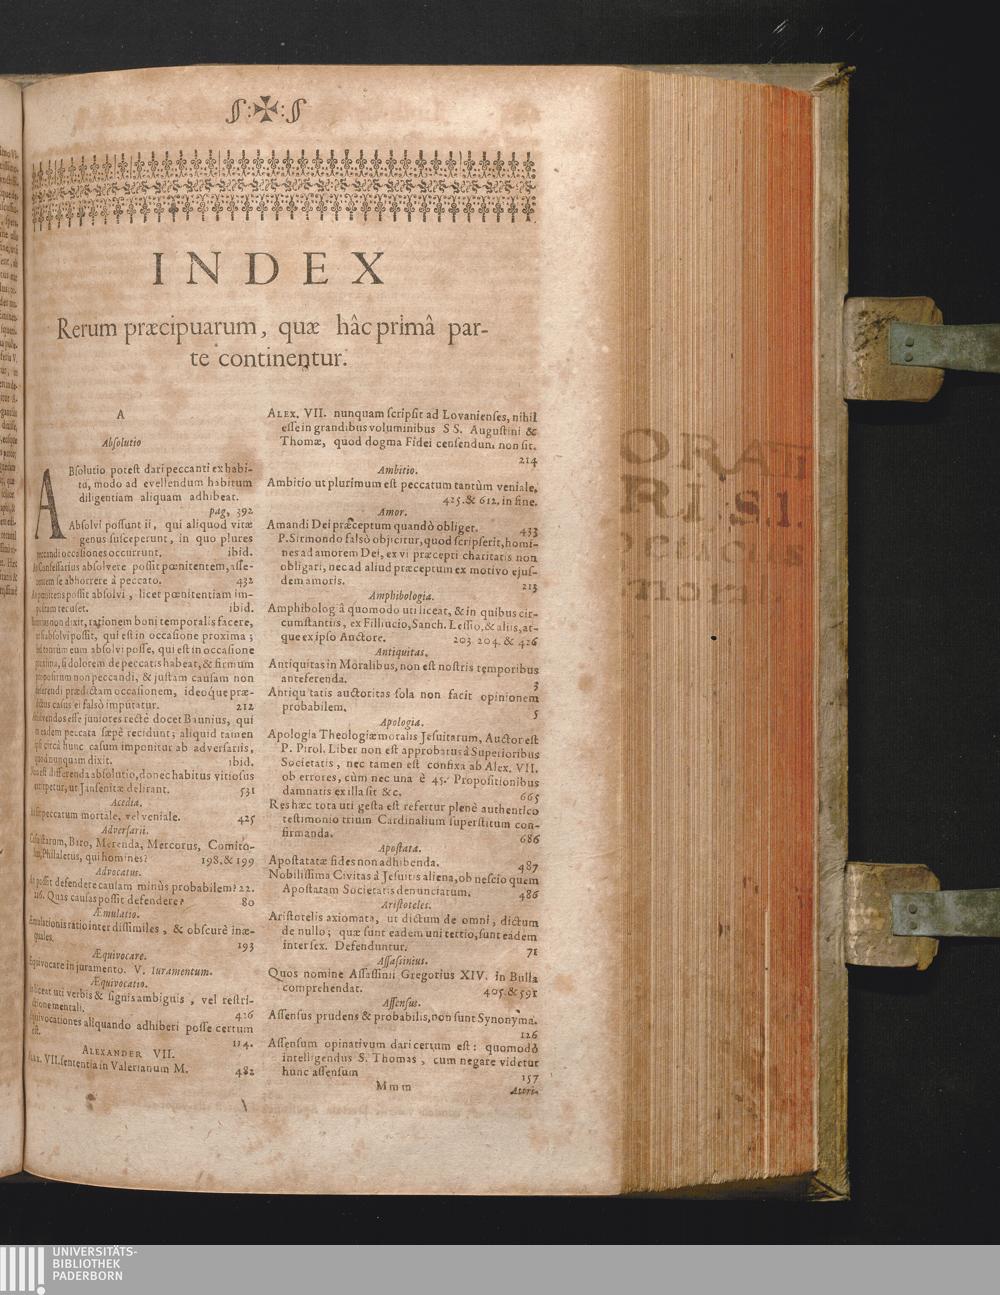 INDEX
Rerum præcipuarum, quæ hâc primâ par-
te continentur.
A
Absolutio
ABsolutio potest dari peccanti ex habi-
tu, modo ad evellendum habitum
diligentiam aliquam adhibeat.
pag, 392
Absolvi possunt ii, qui aliquod vitæ
genus susceperunt, in quo plures
peccandi occasiones occurrunt. ibid.
An Confessarius absolvere possit pœnitentem, asse-
rentem se abhorrere à peccato. 432
An pœnitens possit absolvi, licet pœnitentiam im-
positam recuset. ibid.
non dixit, rationem boni temporalis facere,
absolvi possit, qui est in occasione proxima;
tantùm eum absolvi posse, qui est in occasione
proxima, si dolorem de peccatis habeat, & firmum
propositum non peccandi, & justam causam non
deserendi prædictam occasionem, ideoque præ-
dictus casus ei falsò imputatur. 212
Absolvendos esse juniores rectè docet Baunius, qui
in eadem peccata sæpè recidunt; aliquid tamen
circà hunc casum imponitur ab adversariis,
quod nunquam dixit. ibid.
Non est differenda absolutio, donec habitus vitiosus
extirpetur, ut Jansenitæ delirant. 531
Acedia.
An sit peccatum mortale, vel veniale. 425
Adversarii.
Casuistarum, Baro, Merenda, Mercorus, Comito-
lus, Philaletus, qui homines? 198. & 199
Advocatus.
An possit defendere causam minùs probabilem? 22.
216. Quas causas possit defendere? 80
Æmulatio.
Æmulationis ratio inter dissimiles, & obscurè inæ-
quales. 193
Æquivocare.
Æquivocare in juramento. V. Iuramentum.
Æquivocatio.
An liceat uti verbis & signis ambiguis, vel restri-
ctione mentali. 426
Æquivocationes aliquando adhiberi posse certum
est. 114.
ALEXANDER VII.
Alex. VII. sententia in Valerianum M. 482
ALEX. VII. nunquam scripsit ad Lovanienses, nihil
esse in grandibus voluminibus SS. Augustini &
Thomæ, quod dogma Fidei censendum non sit.
214
Ambitio.
Ambitio ut plurimum est peccatum tantùm veniale.
425. & 612. in fine.
Amor.
Amandi Dei præceptum quandò obliget. 433
P. Sirmondo falsò objicitur, quod scripserit, homi-
nes ad amorem Dei, ex vi præcepti charitatis non
obligari, nec ad aliud præceptum ex motivo ejus-
dem amoris. 213
Amphibologia.
Amphibologiâ quomodo uti liceat, & in quibus cir-
cumstantiis, ex Filliucio, Sanch. Lessio, & aliis, at-
que ex ipso Auctore. 203. 204. & 426
Antiquitas.
Antiquitas in Moralibus, non est nostris temporibus
anteferenda. 3
Antiquitatis auctoritas sola non facit opinionem
probabilem. 5
Apologia.
Apologia Theologiæ moralis Jesuitarum, Auctor est
P. Pirol. Liber non est approbatus à Superioribus
Societatis, nec tamen est confixa ab Alex. VII.
ob errores, cùm nec una è 45. Propositionibus
damnatis ex illa sit &c. 665
Res hæc tota uti gesta est refertur plenè authentico
testimonio trium Cardinalium superstitum con-
firmanda. 686
Apostata.
Apostatatæ fides non adhibenda. 487
Nobilissima Civitas à Jesuitis aliena, ob nescio quem
Apostatam Societatis denunciatum. 486
Aristoteles.
Aristotelis axiomata, ut dictum de omni, dictum
de nullo; quæ sunt eadem uni tertio, sunt eadem
inter sex. Defenduntur. 71
Assassinius.
Quos nomine Assassinii Gregorius XIV. in Bulla
comprehendat. 405. & 591
Assensus.
Assensus prudens & probabilis, non sunt Synonyma.
126
Assensum opinativum dari certum est: quomodò
intelligendus S. Thomas, cum negare videtur
hunc assensum 157
Mmm Azori-
UNIVERSITÄTS-
BIBLIOTHEK
PADERBORN